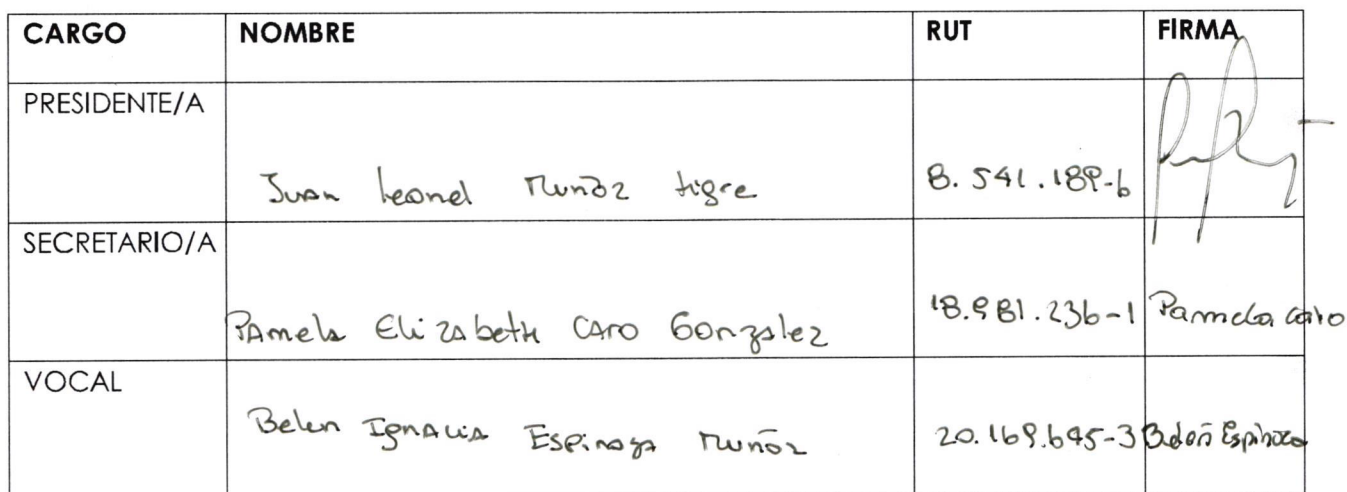 CARGO NOMBRE RUT FIRMA
PRESIDENTE/A
Juan Leonel Muñoz tigre 8.541.189-6
SECRETARIO/A
PAmela Elizabeth CAro Gonzalez 18.981.236-1 Pamela caro
VOCAL
Belen IgnAciA Espinoza Muñoz 20.169.645-3 Belen Espinoza